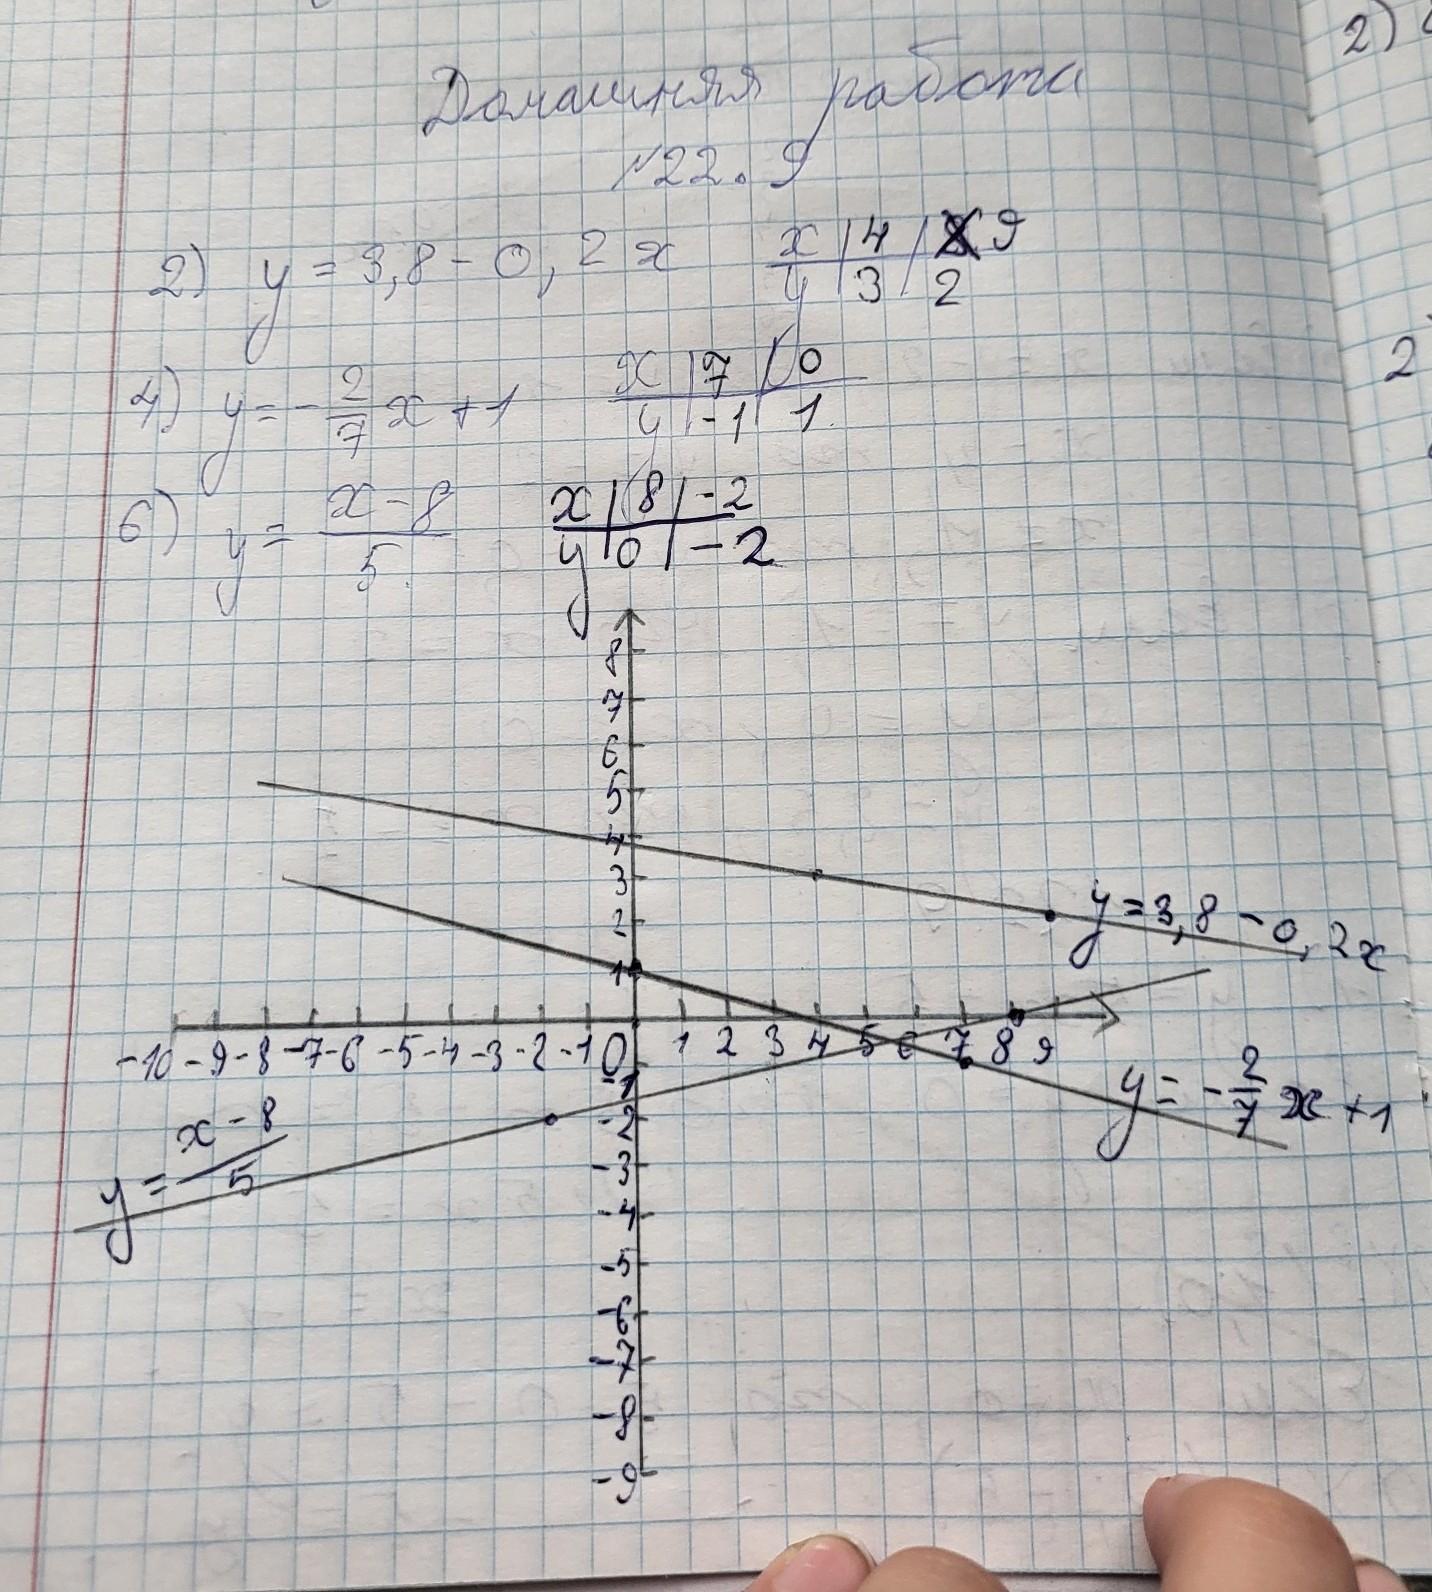 2)
Домашняя работа
№22.9
2) y = 3,8 - 0,2x   x | 4 | 9
y | 3 | 2
2
4) y = -2/7 x + 1   x | 7 | 0
y | -1 | 1
6) y = (x - 8)/5   x | 8 | -2
y | 0 | -2
8
7
6
5
4
3
2
1
y = 3,8 - 0,2x
-10 -9 -8 -7 -6 -5 -4 -3 -2 -1 0 1 2 3 4 5 6 7 8 9
y = -2/7 x + 1
-1
-2
y = (x - 8)/5
-3
-4
-5
-6
-7
-8
-9